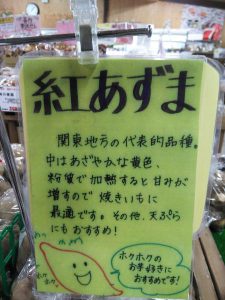 紅あずま
関東地方の代表的品種。
中はあざやかな黄色、
粉質で加熱すると甘みが
増すので焼きいもに
最適です。その他、天ぷら
にもおすすめ!
ホクホクの
お芋好きに
おすすめです!
ホク
ホク